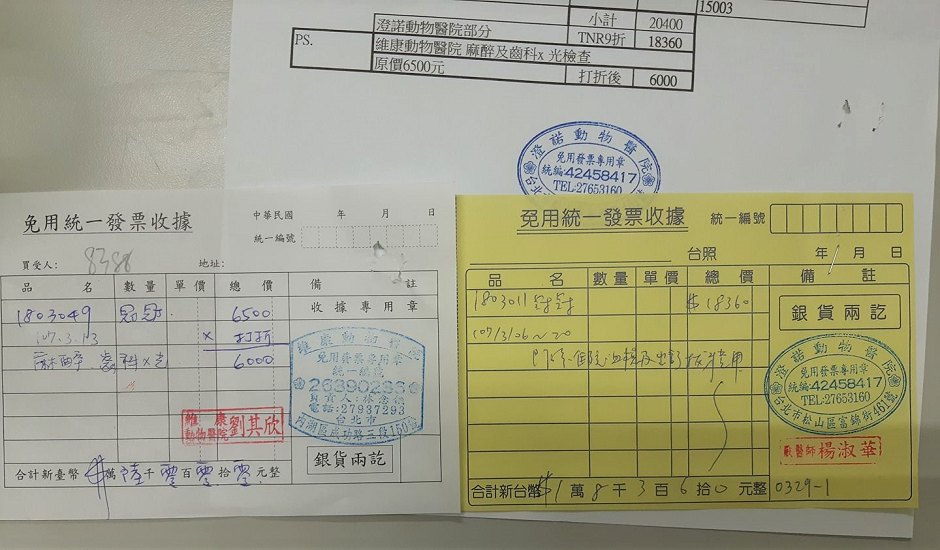 15003
小計 20400
澄諾動物醫院部分 TNR9折 18360
PS. 維康動物醫院 麻醉及齒科x 光檢查
原價6500元 打折後 6000
澄諾動物醫院
免用發票專用章
統編:42458417
TEL:27653160
免用統一發票收據
中華民國 年 月 日
統一編號
買受人: 8388 地址:
品名 數量 單價 總價 備註
1803049 6500
收據專用章
107.3.13 x 打折
麻醉. 齒科x光 6000
維康動物醫院
免用發票專用章
統一編號
26390233
負責人:林
電話:27937293
台北市
內湖區成功路三段150號
維康動物醫院 劉其欣
銀貨兩訖
合計新臺幣 $ 萬 陸 千 零 百 零 拾 零 元整
免用統一發票收據 統一編號
台照 年 月 日
品名 數量 單價 總價 備註
1803011 $18360
銀貨兩訖
107/3/06~20
門診、住院、血檢及
澄諾動物醫院
免用發票專用章
統編:42458417
TEL:27653160
台北市松山區富錦街461號
獸醫師 楊淑華
合計新台幣 $1 萬 8 千 3 百 6 拾 0 元整 0329-1